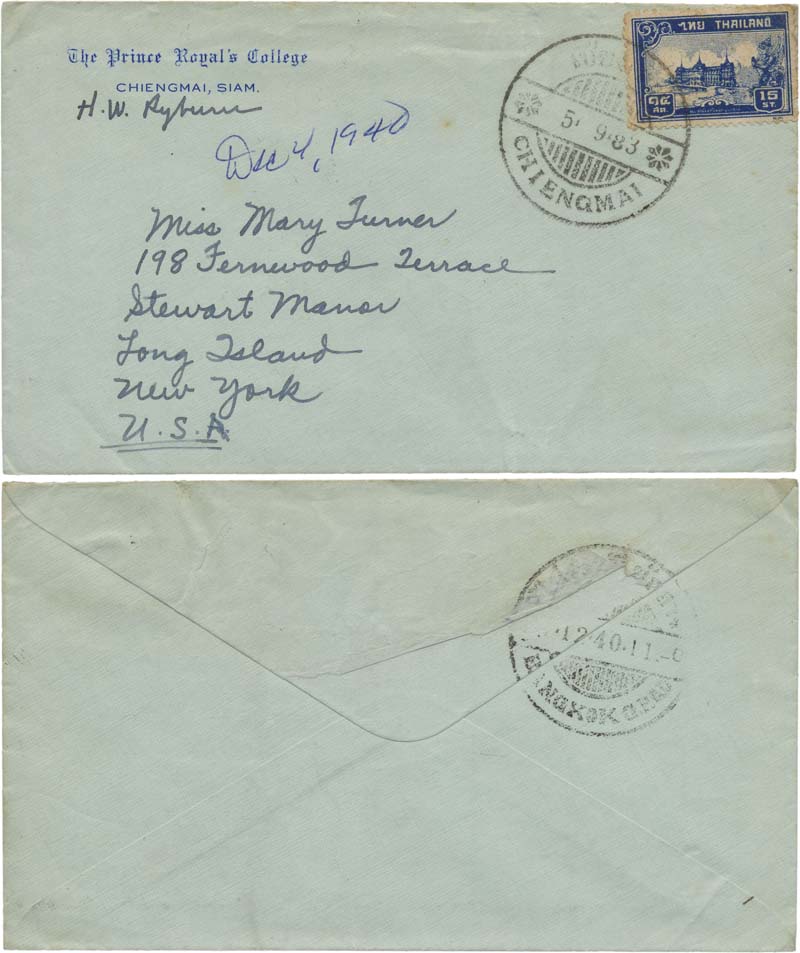 The Prince Royal's College
CHIENGMAI, SIAM.
H. W. Ryburn
Dec 4, 1940
ไทย THAILAND
๑๕ 15
สต. ST.
5 · 9 · 83
CHIENGMAI
Miss Mary Turner
198 Fernwood Terrace
Stewart Manor
Long Island
New York
U.S.A
12·40·11
BANGKOK G.P.O.